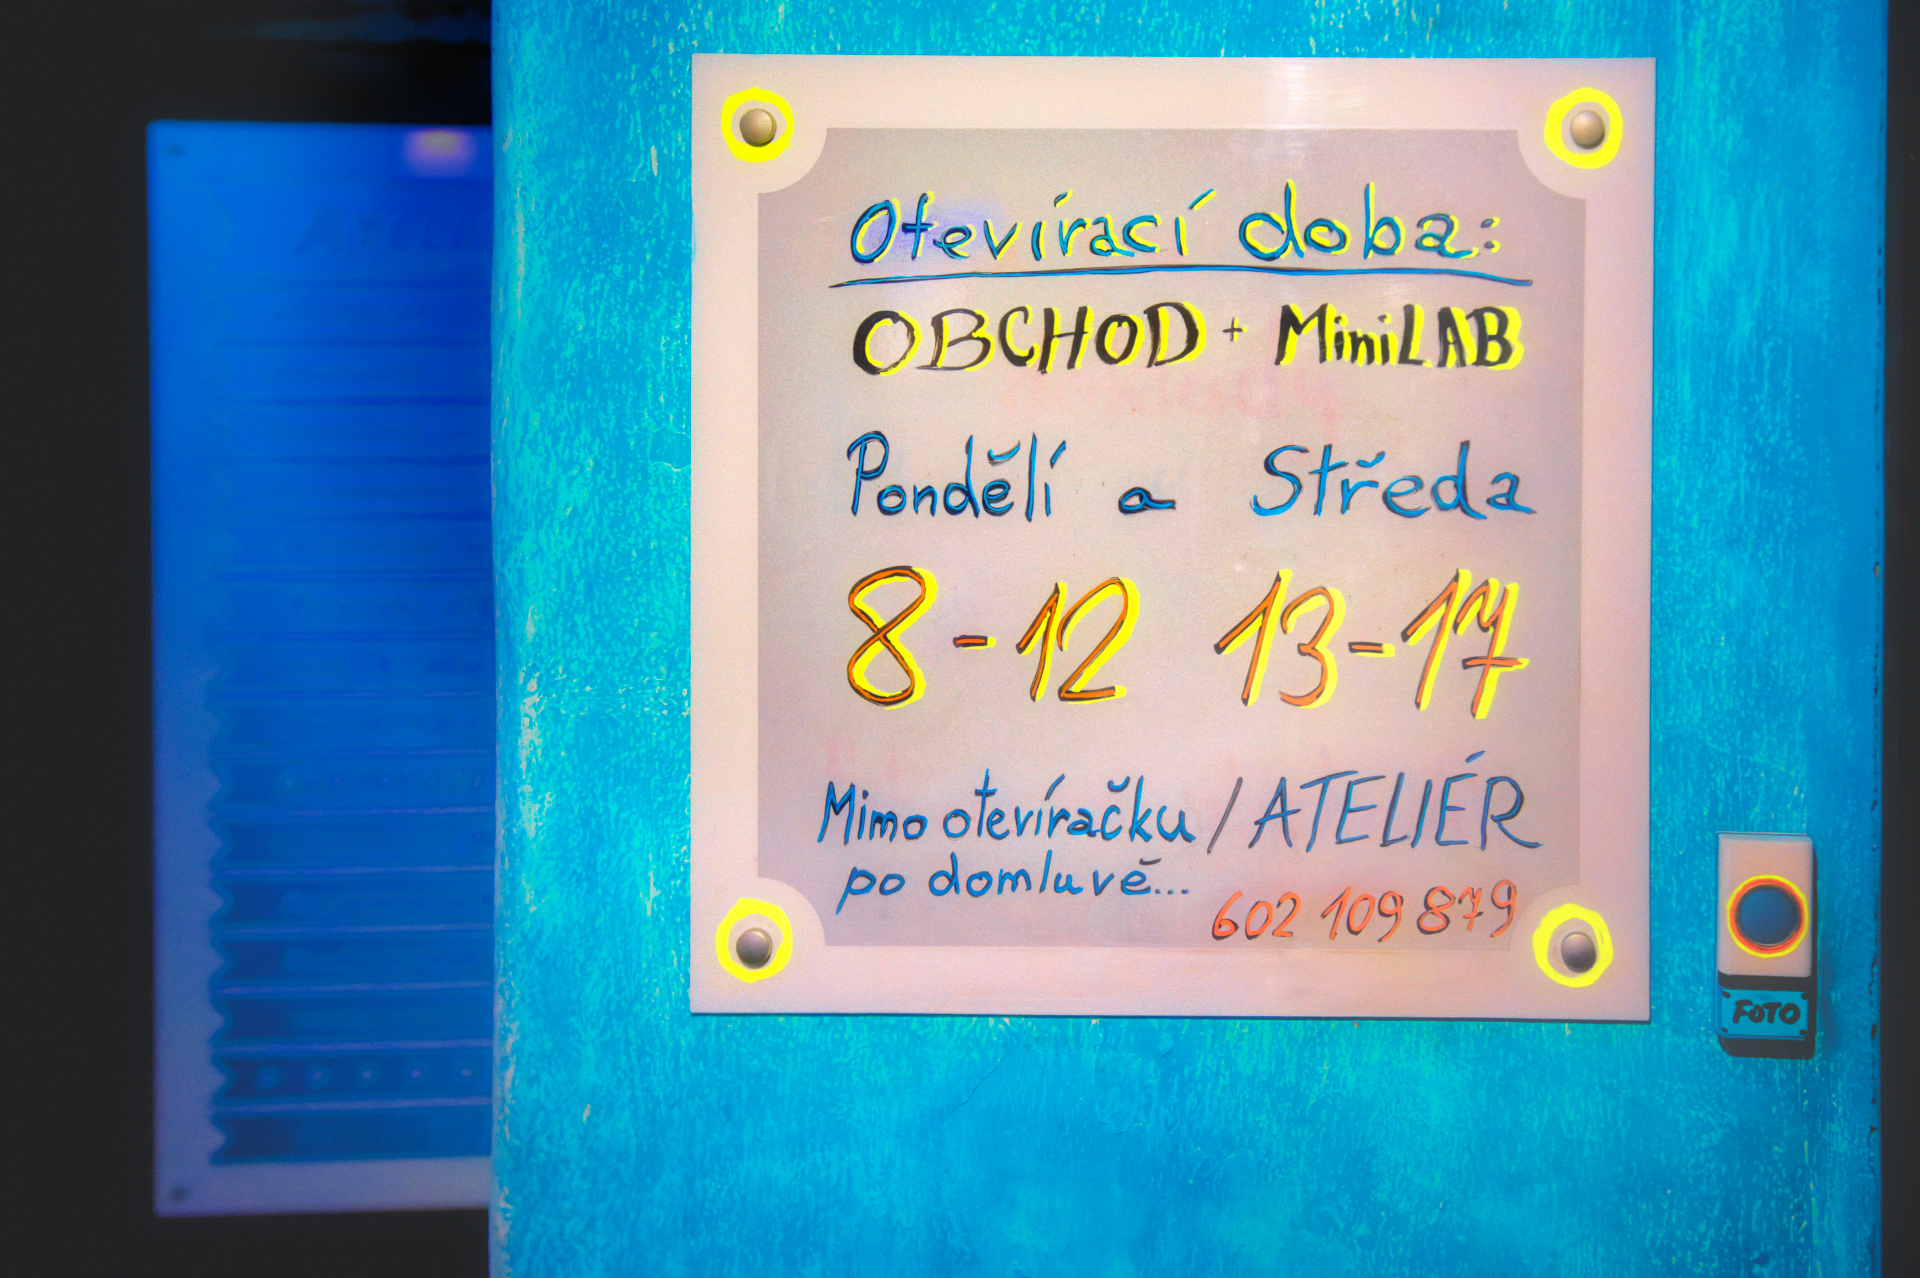 Otevírací doba:
OBCHOD + MiniLAB
Pondělí a Středa
8-12 13-17
Mimo otevíračku / ATELIÉR
po domluvě...
602 109 879
FOTO